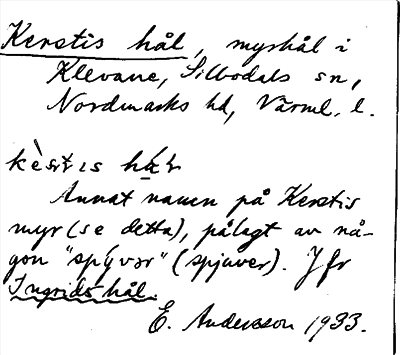 Kerstis hål, myrhål i
Klevane, Silbodals sn,
Nordmarks hd, Värml. l.
Annat namn på Kerstis
myr (se detta), pålagt av nå-
gon "spyvər" (spjuver). Jfr
Ingrids hål.
E. Andersson 1933.